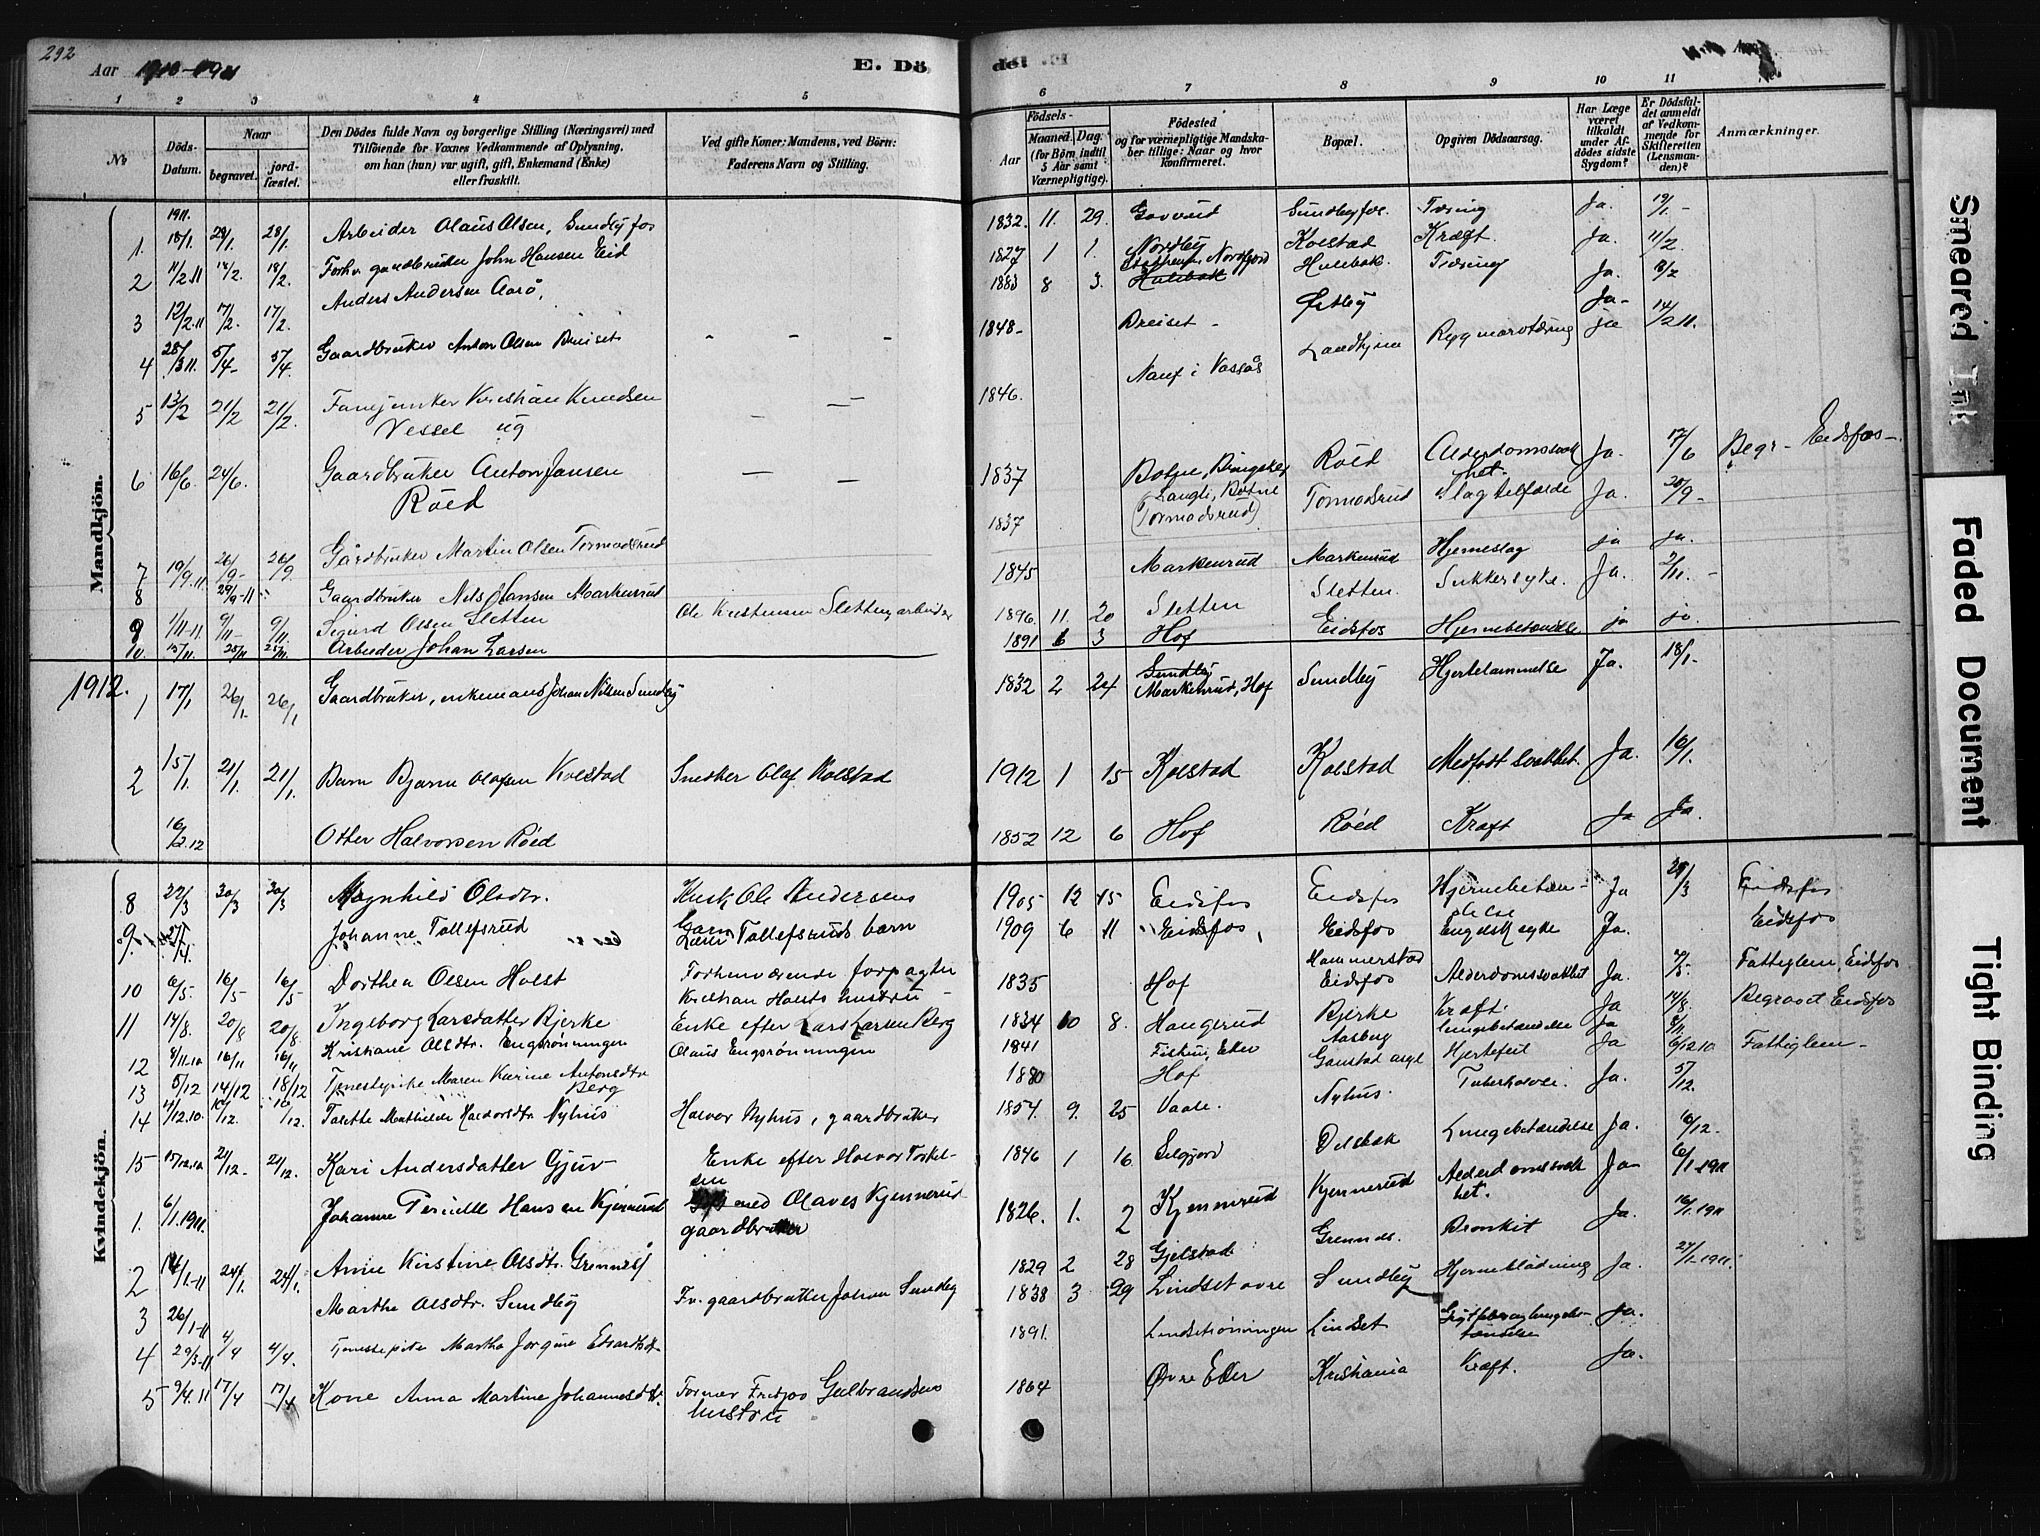 292
Aar 1910-1911
E. Dö
de!
1 2 3 4 5 6 7 8 9 10 11
No
Döds-Datum.
Naar
begravet.
jord-fæstet.
Den Dödes fulde Navn og borgerlige Stilling (Næringsvei) med
Tilföiende for Voxnes Vedkommende af Oplysning,
om han (hun) var ugift, gift, Enkemand (Enke)
eller fraskilt.
Ved gifte Koner: Mandens, ved Börn:
Faderens Navn og Stilling.
Födsels-
Aar
Maaned. Dag
(for Börn indtil
5 Aar samt
Værnepligtige).
Födested
og for værnepligtige Mandska-
ber tillige: Naar og hvor
konfirmeret.
Bopæl.
Opgiven Dödsaarsag.
Har Læge
været
tilkaldt
under Af-
dödes sidste
Sygdom?
Er Dödsfal-
det anmeldt
af Vedkom-
mende for
Skifteretten
(Lensman-
den)?
Anmærkninger.
Mandkjön.
1911.
1. 18/1 28/1. 28/1. Arbeider Olaus Olsen, Sundbyfos 1832. 11. 29. Sundbyfos. Tæring Ja. 19/1.-
2 11/2 11 18/2. 18/2. Forhv. gaardbruker John Hansen Eid 1827 1 1. Nordby Kolstad Kræft. Ja. 11/2.
3 12/2.11 17/2. 17/2. Anders Andersen Aarö, 1883 8 3. Nordfjord Hulebak Hulebak. Tæring Ja. 13/2
4 28/3 11. 5/4- 5/4. Gaardbruker Anton Olsen Breiset - - - 1848- Breiset - Østby Ja- 14/2 11.
5 13/2 21/2 21/2. Fanejunker Kristian Knudsen
Vessel ug 1846. i Vassås Rygmarvtæring ja
6 16/6. 24/6. Gaardbruker Anton Jansen
Röed 1837 Botne, Röed Alderdomssvak
het. Ja. 17/6 Begr. Eidsfos-
7 19/9.11 26/9- 26/9. Gårdbruker Martin Olsen Tormodsrud 1837 Langli, Botne
(Tormodsrud) Tormodsrud Slagtilfælde Ja. 20/9-
8 29/9-11 Gaardbruker Nils Hansen Markenrud 1845 Markenrud Markenrud Hjerneslag ja ja.
9 1/11-11. 9/11- 9/11. Sigurd Olsen Sletten Ole Kristensen Sletten, arbeider 1896. 11. 20 Sletten Sletten. Sukkersyke. Ja. 2/11.-
10. 25/11 25/11. Arbeider Johan Larsen 1891 6 3 Hof Eidsfos Hjernebetændelse ja ja.
1912.
1 17/1 26/1. 26/1 Gaardbruker, enkemand Johan Nilsen Sundby 1832 2 24 Sundby
Markenrud, Hof Sundby Hjertelammelse Ja. 18/1-
2 15/1. 21/1. 21/1. Barn Bjarne Olafsen Kolstad Snedker Olaf Kolstad 1912 1 15 Kolstad Kolstad Medfödt svakhet. Ja. 16/1.
16/2.12 Otter Halvorsen Röed 1852 12 6 Hof Röed Kræft Ja Ja.
Kvindekjön.
8 22/3 30/3 30/3 Magnhild Olsdtr. Kusk Ole Andersens 1905 12 15 Eidsfos Eidsfos Hjernebetæn-
delse Ja 25/3 Eidsfos
9. 27/4. Johanne Tollefsrud Tollefsruds barn 1909 6 11 Eidsfos, Eidsfos Engelsk syke Ja. Eidsfos
10 6/5. 16/5- 16/5 Dorthea Olsen Holst Forhenværende forpagter
Kristian Holsts hustru - 1835 Hof Hammerstad
Eidsfos Alderdomssvakhet Ja. Fattiglem, Eidsfos
11 14/8. 20/8 20/8 Ingeborg Larsdatter Bjerke Enke efter Lars Larsen Berg 1834 10 8. Haugerud Bjerke Kræft. Ja 14/8. Begravet Eidsfos
12 8/11-10 16/11 16/11 Kristiane Olsdtr. Engsrönningen Olaus Engsrönningen 1841 Fiskum, Eker Aasberg lungebetændelse Ja 9/11.
13 5/12 14/12 18/12 Tjenestepike Maren Karine Antonsdtr
Berg 1880 Hof Hjertefeil Ja 6/12 10 Fattiglem-
14 4/12.10. /12. /12. Torette Mathilde Halvorsdtr Nyhus Halvor Nyhus, gaardbruker 1854. 9. 25 Vaale. Nyhus. Tuberkulose. Ja. 5/12.
15 15/12.10. 21/12. 21/12. Kari Andersdatter Gjuv- Enke efter Halvor Torkel-
sen 1846 1 16 Seljord Lungebetændelse Ja. 16/12.
1. 6/1.1911. Johanne Pernille Hansen Kjennerud Gift med Olaves Kjennerud
gaardbruker 1826. 1. 2 Kjennerud Kjennerud Alderdomssvak
het. Ja- 6/1 1911
2 14/1.-11 24/1. 24/1. Anne Kirstine Olsdtr. Grennes 1829 2 28 Gjelstad Grennes. Bronkit Ja. 16/1.1911
3 26/1-11 Marthe Olsdtr. Sundby Fv. gaardbruker Johan Sundby 1838 3 29 Lindset övre Sundby Hjerneblödning Ja. 27/1.1911.
4 29/3-11 4/4 4/4. Tjenestepike Martha Jorgine Edvardsdtr 1891. Lindsetrönningen Lindset Ja.
5 9/4.11 17/4 17/4 Kone Anna Martine Johannesdtr. Former Fredjov Gulbrandsens
hustru 1864 Øvre Eker Kristiania Kræft. Ja.
Smeared Ink
Faded Document
Tight Binding